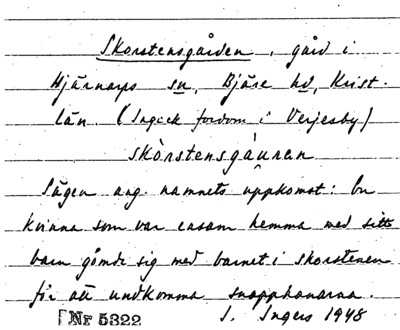 Skorstensgården, gård i
Hjärnarps sn, Bjäre hd, Krist.
län. (Ingick fordom i Verjesby)
skòrstensgåuran
Sägen ang. namnets uppkomst: En
kvinna som var ensam hemma med sitt
barn gömde sig med barnet i skorstenen
för att undkomma snapphanarna.
Nr 5322
I. Ingers 1948